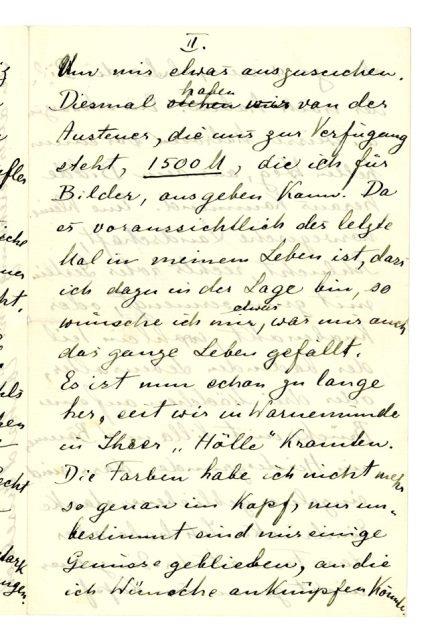 II.
Um mir etwas auszusuchen.
haben
Diesmal von der
Austeuer, die uns zur Verfügung
steht, 1500 M, die ich für
Bilder, ausgeben kann. Da
es voraussichtlich das letzte
Mal in meinem Leben ist, dass
ich dazu in der Lage bin, so
etwas
wünsche ich mir, was mir auch
das ganze Leben gefällt.
Es ist nun schon zu lange
her, seit wir in Warnemünde
in Ihrer „Hölle“ kramten.
Die Farben habe ich nicht mehr
so genau im Kopf, nur un=
bestimmt sind mir einige
Genüsse geblieben, an die
ich Wünsche anknüpfen könnte.